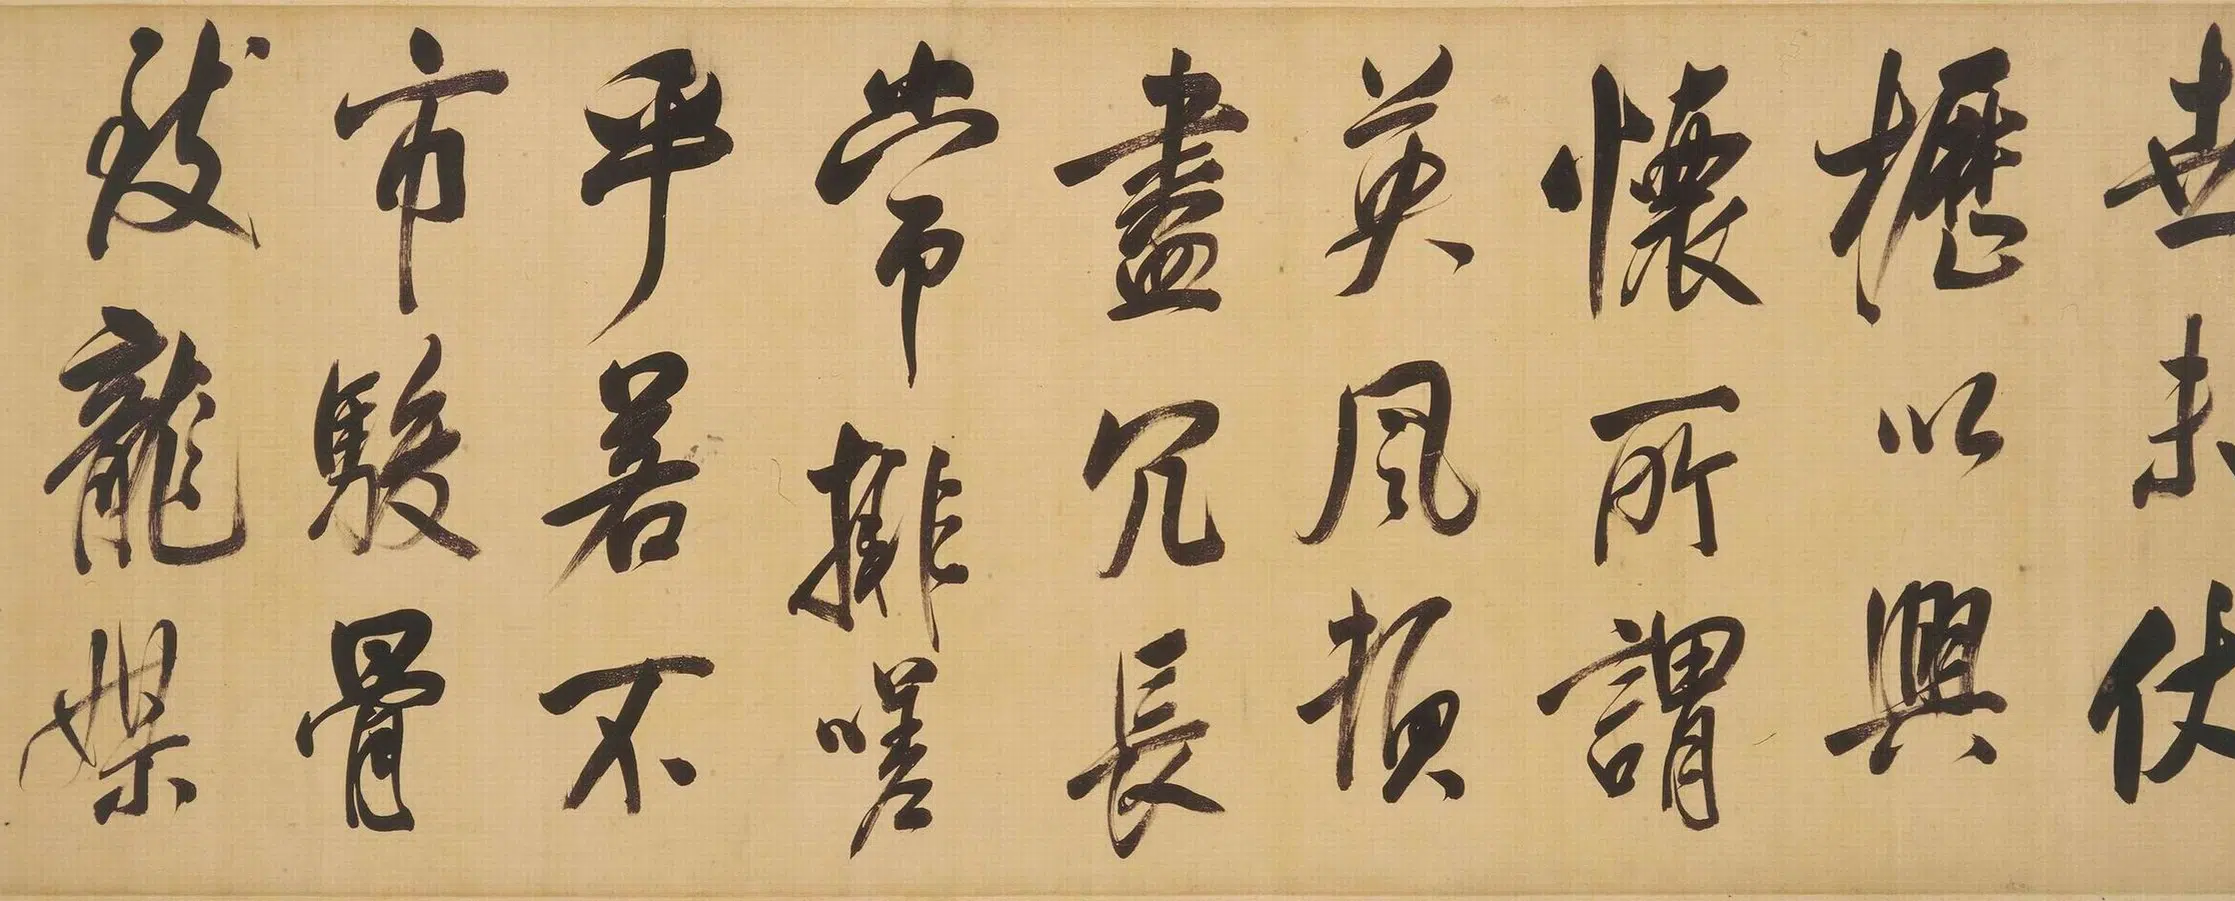 世未伏
櫪以興
懷所謂
英風頓
盡冗長
常排嗟
乎若不
市駿骨
致龍媒